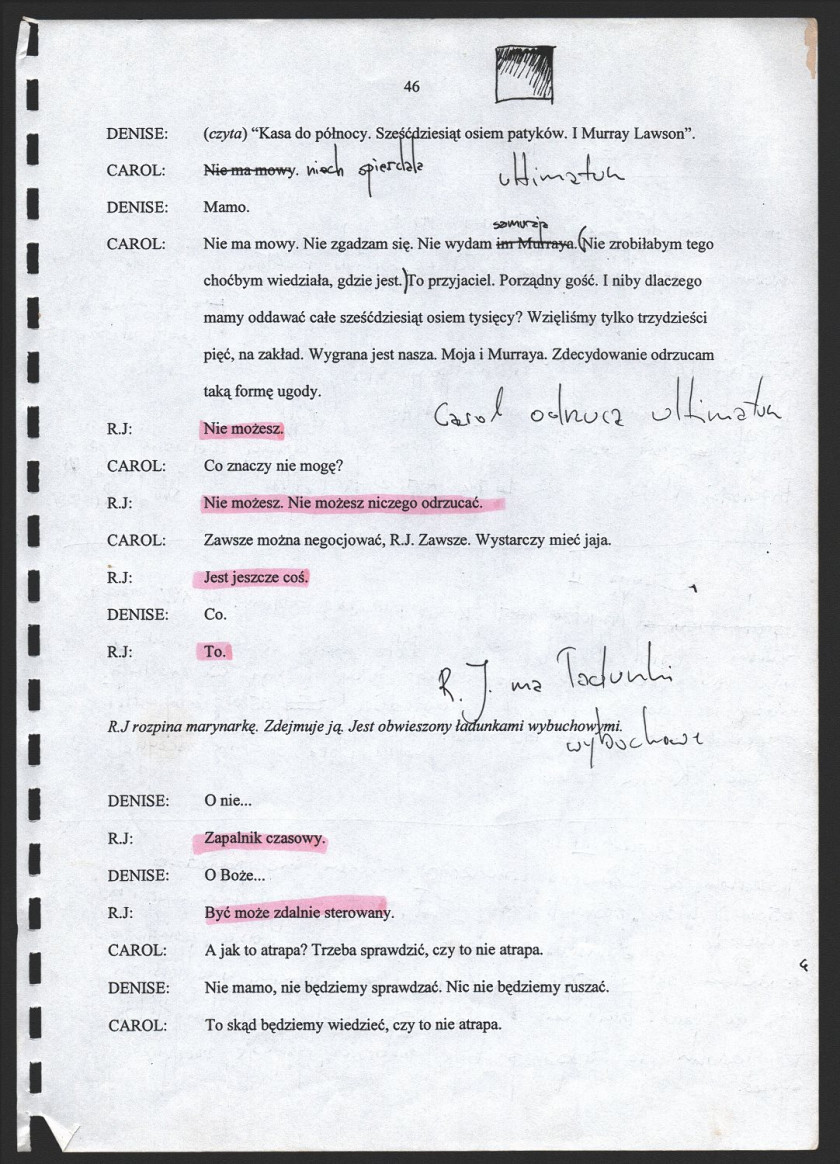 46
DENISE: (czyta) “Kasa do północy. Sześćdziesiąt osiem patyków. I Murray Lawson”.
CAROL: Nie ma mowy. niech spierdala
ultimatum
DENISE: Mamo.
samuraja
CAROL: Nie ma mowy. Nie zgadzam się. Nie wydam im Murraya. (Nie zrobiłabym tego
choćbym wiedziała, gdzie jest.) To przyjaciel. Porządny gość. I niby dlaczego
mamy oddawać całe sześćdziesiąt osiem tysięcy? Wzięliśmy tylko trzydzieści
pięć, na zakład. Wygrana jest nasza. Moja i Murraya. Zdecydowanie odrzucam
taką formę ugody.
Carol odrzuca ultimatum
R.J: Nie możesz.
CAROL: Co znaczy nie mogę?
R.J: Nie możesz. Nie możesz niczego odrzucać.
CAROL: Zawsze można negocjować, R.J. Zawsze. Wystarczy mieć jaja.
R.J: Jest jeszcze coś.
DENISE: Co.
R.J: To.
R.J. ma ładunki
wybuchowe
R.J rozpina marynarkę. Zdejmuje ją. Jest obwieszony ładunkami wybuchowymi.
DENISE: O nie...
R.J: Zapalnik czasowy.
DENISE: O Boże...
R.J: Być może zdalnie sterowany.
CAROL: A jak to atrapa? Trzeba sprawdzić, czy to nie atrapa.
DENISE: Nie mamo, nie będziemy sprawdzać. Nic nie będziemy ruszać.
CAROL: To skąd będziemy wiedzieć, czy to nie atrapa.